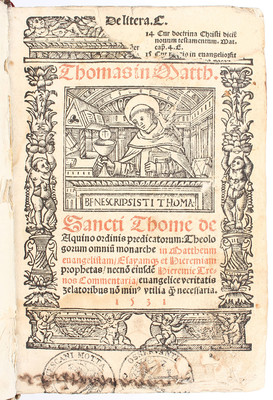 De litera. C.
14 Cur doctrina Christi dicit
novum testamentum. Mat.
cap. 4. E.
15 in evangelio
Thomas in Matth.
BENE SCRIPSISTI THOMA:
Sancti Thome de
Aquino ordinis predicatorum: Theolo
gorum omniũ monarche in Mattheum
evangelistam/ Esayamqz et Hieremiam
prophetas/ necnõ eiusdẽ Hieremie Tre
nos Commentaria: evangelice veritatis
zelatoribus nõ min⁹ utilia q̃ necessaria.
1531
MOTTA